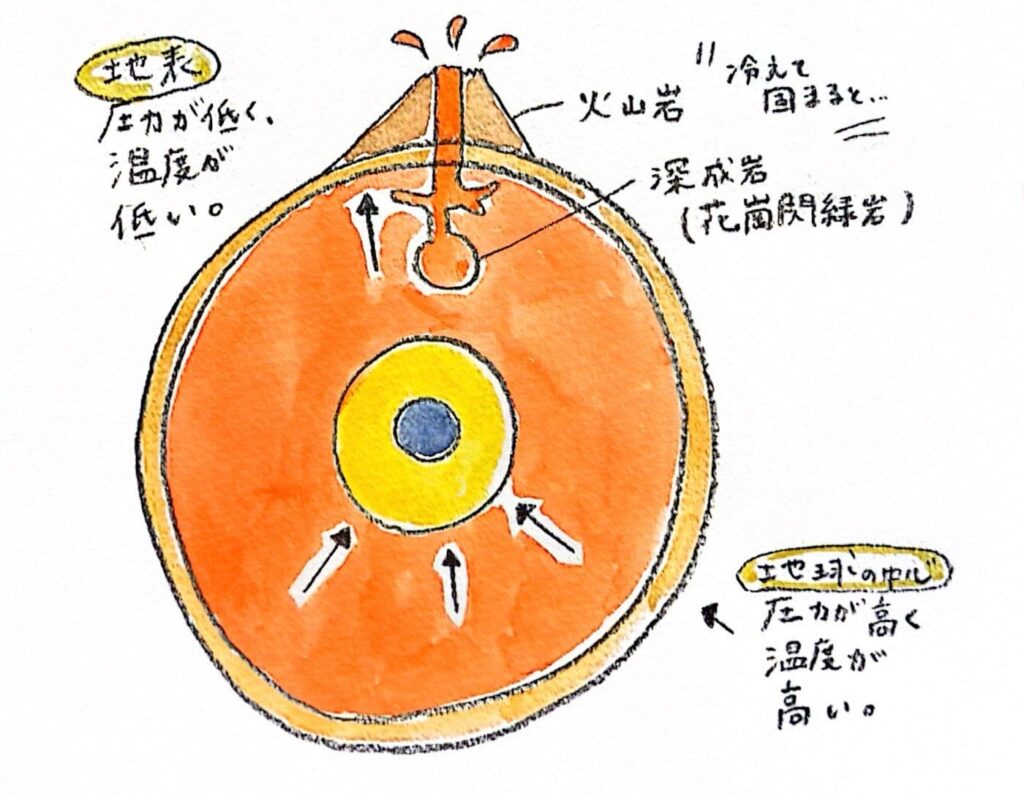 地表
圧力が低く、
温度が
低い。
火山岩
〃冷えて
固まると…
深成岩
(花崗閃緑岩)
地球の中心
圧力が高く
温度が
高い。